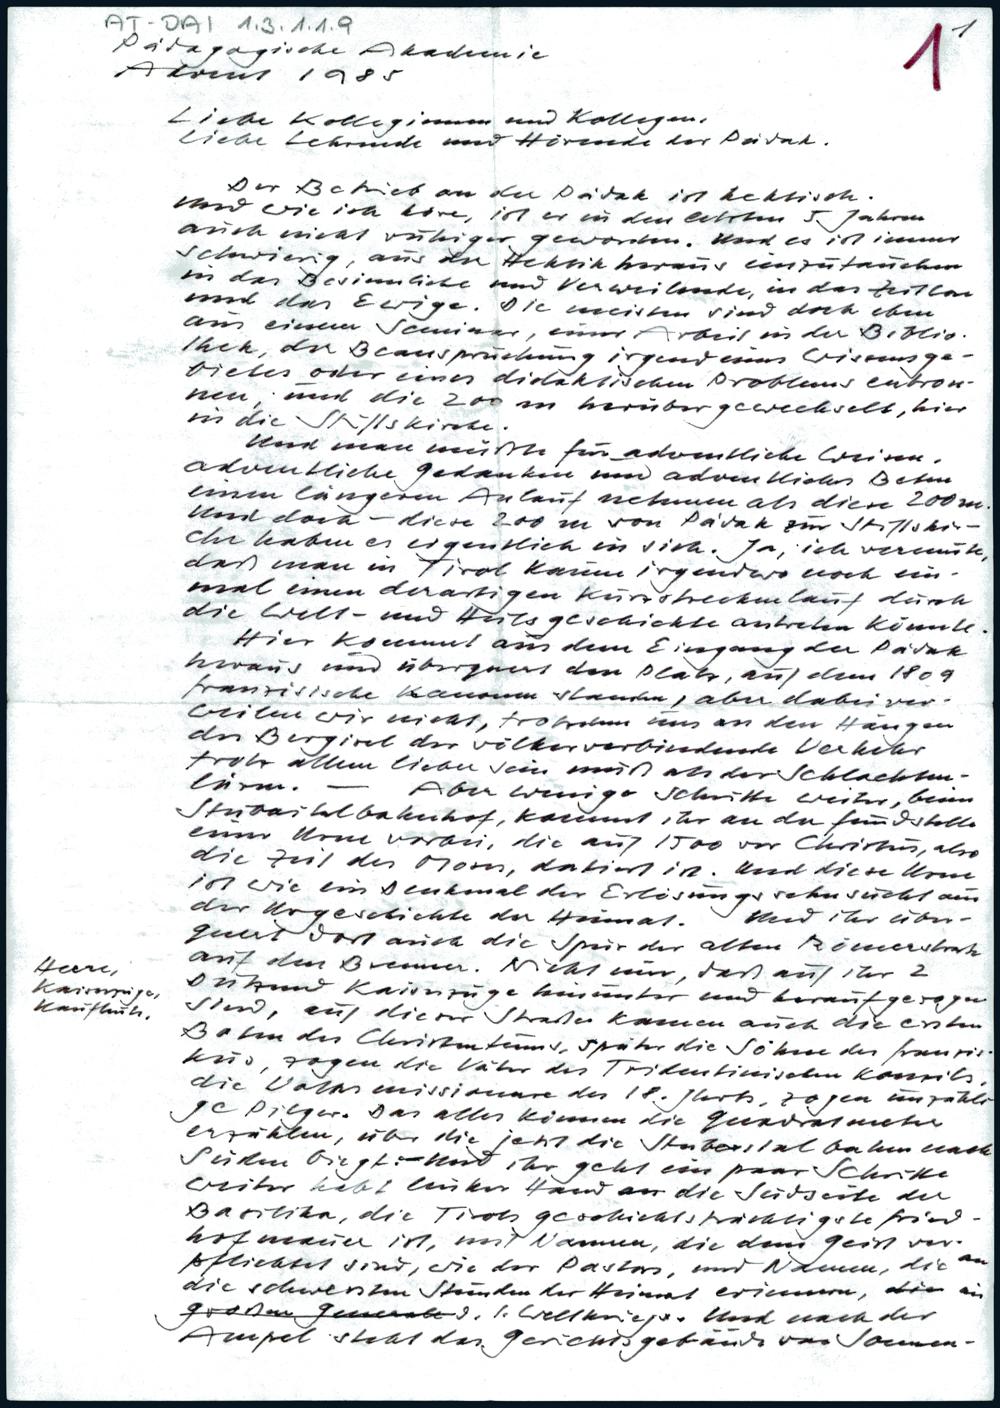 AT-DAI 1.3.1.1.9
1
1
Pädagogische Akademie
Advent 1985
Liebe Kolleginnen und Kollegen.
Liebe Lehrende und Hörende der Pädak.
Der Betrieb an der Pädak ist hektisch.
Und wie ich höre, ist er in den letzten 5 Jahren
auch nicht ruhiger geworden. Und es ist immer
schwierig, aus der Hektik heraus einzutauchen
in das Besinnliche und Verweilende, in das Zeitlose
und das Ewige. Die meisten sind doch eben
aus einem Seminar, einer Arbeit in der Biblio-
thek, der Beanspruchung irgendeines Wissensge-
bietes oder eines didaktischen Problems entron-
nen, und die 200 m herübergewechselt, hier
in die Stiftskirche.
Und man müßte für adventliche Weisen,
adventliche Gedanken und adventliches Beten
einen längeren Anlauf nehmen als diese 200 m.
Und doch – diese 200 m von Pädak zur Stiftskir-
che haben es eigentlich in sich. Ja, ich vermute,
daß man in Tirol kaum irgendwo noch ein-
mal einen derartigen Kurzstreckenlauf durch
die Welt- und Heilsgeschichte antreten könnte.
Hier kommt aus dem Eingang der Pädak
heraus und überquert den Platz, auf dem 1809
französische Kanonen standen, aber dabei ver-
weilen wir nicht, trotzdem uns an den Hängen
des Bergisel der völkerverbindende Verkehr
trotz allem lieber sein muß als der Schlachten-
lärm. — Aber wenige Schritte weiter, beim
Stubaitalbahnhof, kommt ihr an der Fundstelle
einer Urne vorbei, die auf 1500 vor Christus, also
die Zeit des Moses, datiert ist. Und diese Urne
ist wie ein Denkmal der Erlösungssehnsucht aus
der Urgeschichte der Heimat. Und ihr über-
quert dort auch die Spur der alten Römerstraße
auf den Brenner. Nicht nur, daß auf ihr 2
Heere,
Kaiserzüge,
Kaufleute.
Dutzend Kaiserzüge hinunter und heraufgezogen
sind, auf dieser Straße kamen auch die ersten
Boten des Christentums, später die Söhne des Franzis-
kus, zogen die Väter des Tridentinischen Konzils,
die Volksmissionare des 18. Jhrts, zogen unzähli-
ge Pilger. Das alles können die Quadratmeter
erzählen, über die jetzt die Stubaitalbahn nach
Süden biegt. – Und ihr geht ein paar Schritte
weiter habt linker Hand an die Südseite der
Basilika, die Tirols geschichtsträchtigste Fried-
hofmauer ist, mit Namen, die dem Geist ver-
pflichtet sind, wie der Pastors, und Namen, die an
die schwersten Stunden der Heimat erinnern, die in
großen Generale d. 1. Weltkriegs. Und nach der
Ampel steht das Gerichtsgebäude von Sonnen-